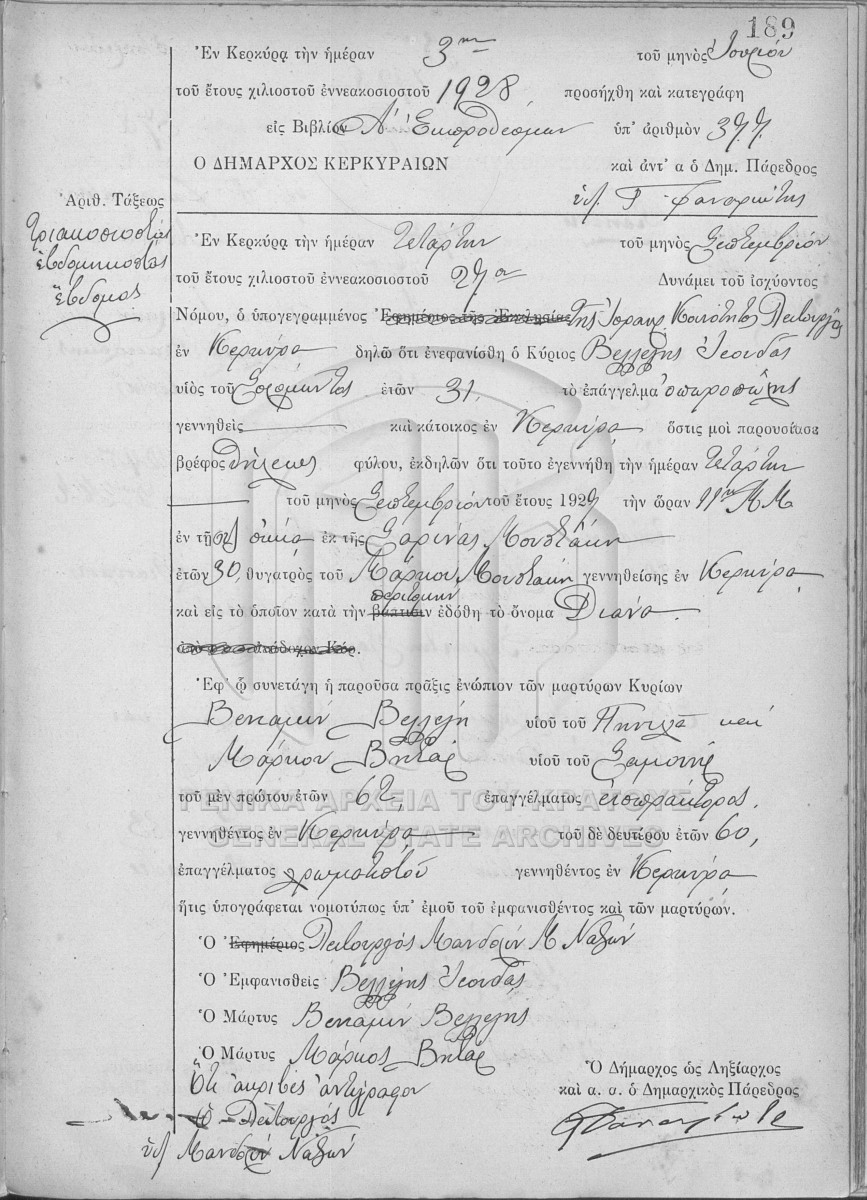 189
Ἐν Κερκύρᾳ τὴν ἡμέραν 3ην τοῦ μηνὸς
τοῦ ἔτους χιλιοστοῦ ἐννεακοσιοστοῦ 1928 προσήχθη καὶ κατεγράφη
εἰς Βιβλίον Α' Ἐκπροθέσμων ὑπ' ἀριθμὸν 377
Ο ΔΗΜΑΡΧΟΣ ΚΕΡΚΥΡΑΙΩΝ καὶ ἀντ' α ὁ Δημ. Πάρεδρος
Ἀριθ. Τάξεως
Τριακοσιοστὸς
ἑβδομηκοστὸς
ἕβδομος
Ἐν Κερκύρᾳ τὴν ἡμέραν Τετάρτην τοῦ μηνὸς Σεπτεμβρίου
τοῦ ἔτους χιλιοστοῦ ἐννεακοσιοστοῦ 27ου Δυνάμει τοῦ ἰσχύοντος
Νόμου, ὁ ὑπογεγραμμένος Ἐφημέριος τῆς Ἐκκλησίας τῆς Ἰσραηλ. Κοινότητος Λειτουργὸς
ἐν Κερκύρᾳ δηλῶ ὅτι ἐνεφανίσθη ὁ Κύριος Βελλέλης Ἰεούδας
υἱὸς τοῦ ἐτῶν 31 τὸ ἐπάγγελμα ὀπωροπώλης
γεννηθεὶς καὶ κάτοικος ἐν Κερκύρᾳ ὅστις μοὶ παρουσίασε
βρέφος θήλεος φύλου, ἐκδηλῶν ὅτι τοῦτο ἐγεννήθη τὴν ἡμέραν Τετάρτην
τοῦ μηνὸς Σεπτεμβρίου τοῦ ἔτους 1927 τὴν ὥραν 11ην Μ.Μ
ἐν τῇ οἰκίᾳ ἐκ τῆς Σαρίνας Μουστάκη
ἐτῶν 30, θυγατρὸς τοῦ Μάρκου Μουστάκη γεννηθείσης ἐν Κερκύρᾳ
καὶ εἰς τὸ ὁποῖον κατὰ τὴν βάπτισιν ἐδόθη τὸ ὄνομα Διάνα.
Ἐφ' ᾧ συνετάγη ἡ παροῦσα πρᾶξις ἐνώπιον τῶν μαρτύρων Κυρίων
Βενιαμὶν Βελλέλη υἱοῦ τοῦ καὶ
Μάρκου Βητὰλ υἱοῦ τοῦ Σαμουὴλ
τοῦ μὲν πρώτου ἐτῶν 62, ἐπαγγέλματος εἰσπράκτορος,
ΓΕΝΙΚΑ ΑΡΧΕΙΑ ΤΟΥ ΚΡΑΤΟΥΣ
γεννηθέντος ἐν Κερκύρᾳ τοῦ δὲ δευτέρου ἐτῶν 60,
GENERAL STATE ARCHIVES
ἐπαγγέλματος χρωματιστοῦ γεννηθέντος ἐν Κερκύρᾳ
ἥτις ὑπογράφεται νομοτύπως ὑπ' ἐμοῦ τοῦ ἐμφανισθέντος καὶ τῶν μαρτύρων.
Ὁ Ἐφημέριος Λειτουργὸς
Ὁ Ἐμφανισθεὶς Βελλέλης Ἰεούδας
Ὁ Μάρτυς Βενιαμὶν Βελλέλης
Ὁ Μάρτυς Μάρκος Βητὰλ
Ὅτι ἀκριβὲς ἀντίγραφον
Ὁ Λειτουργὸς
Ὁ Δήμαρχος ὡς Ληξίαρχος
καὶ α. α. ὁ Δημαρχικὸς Πάρεδρος